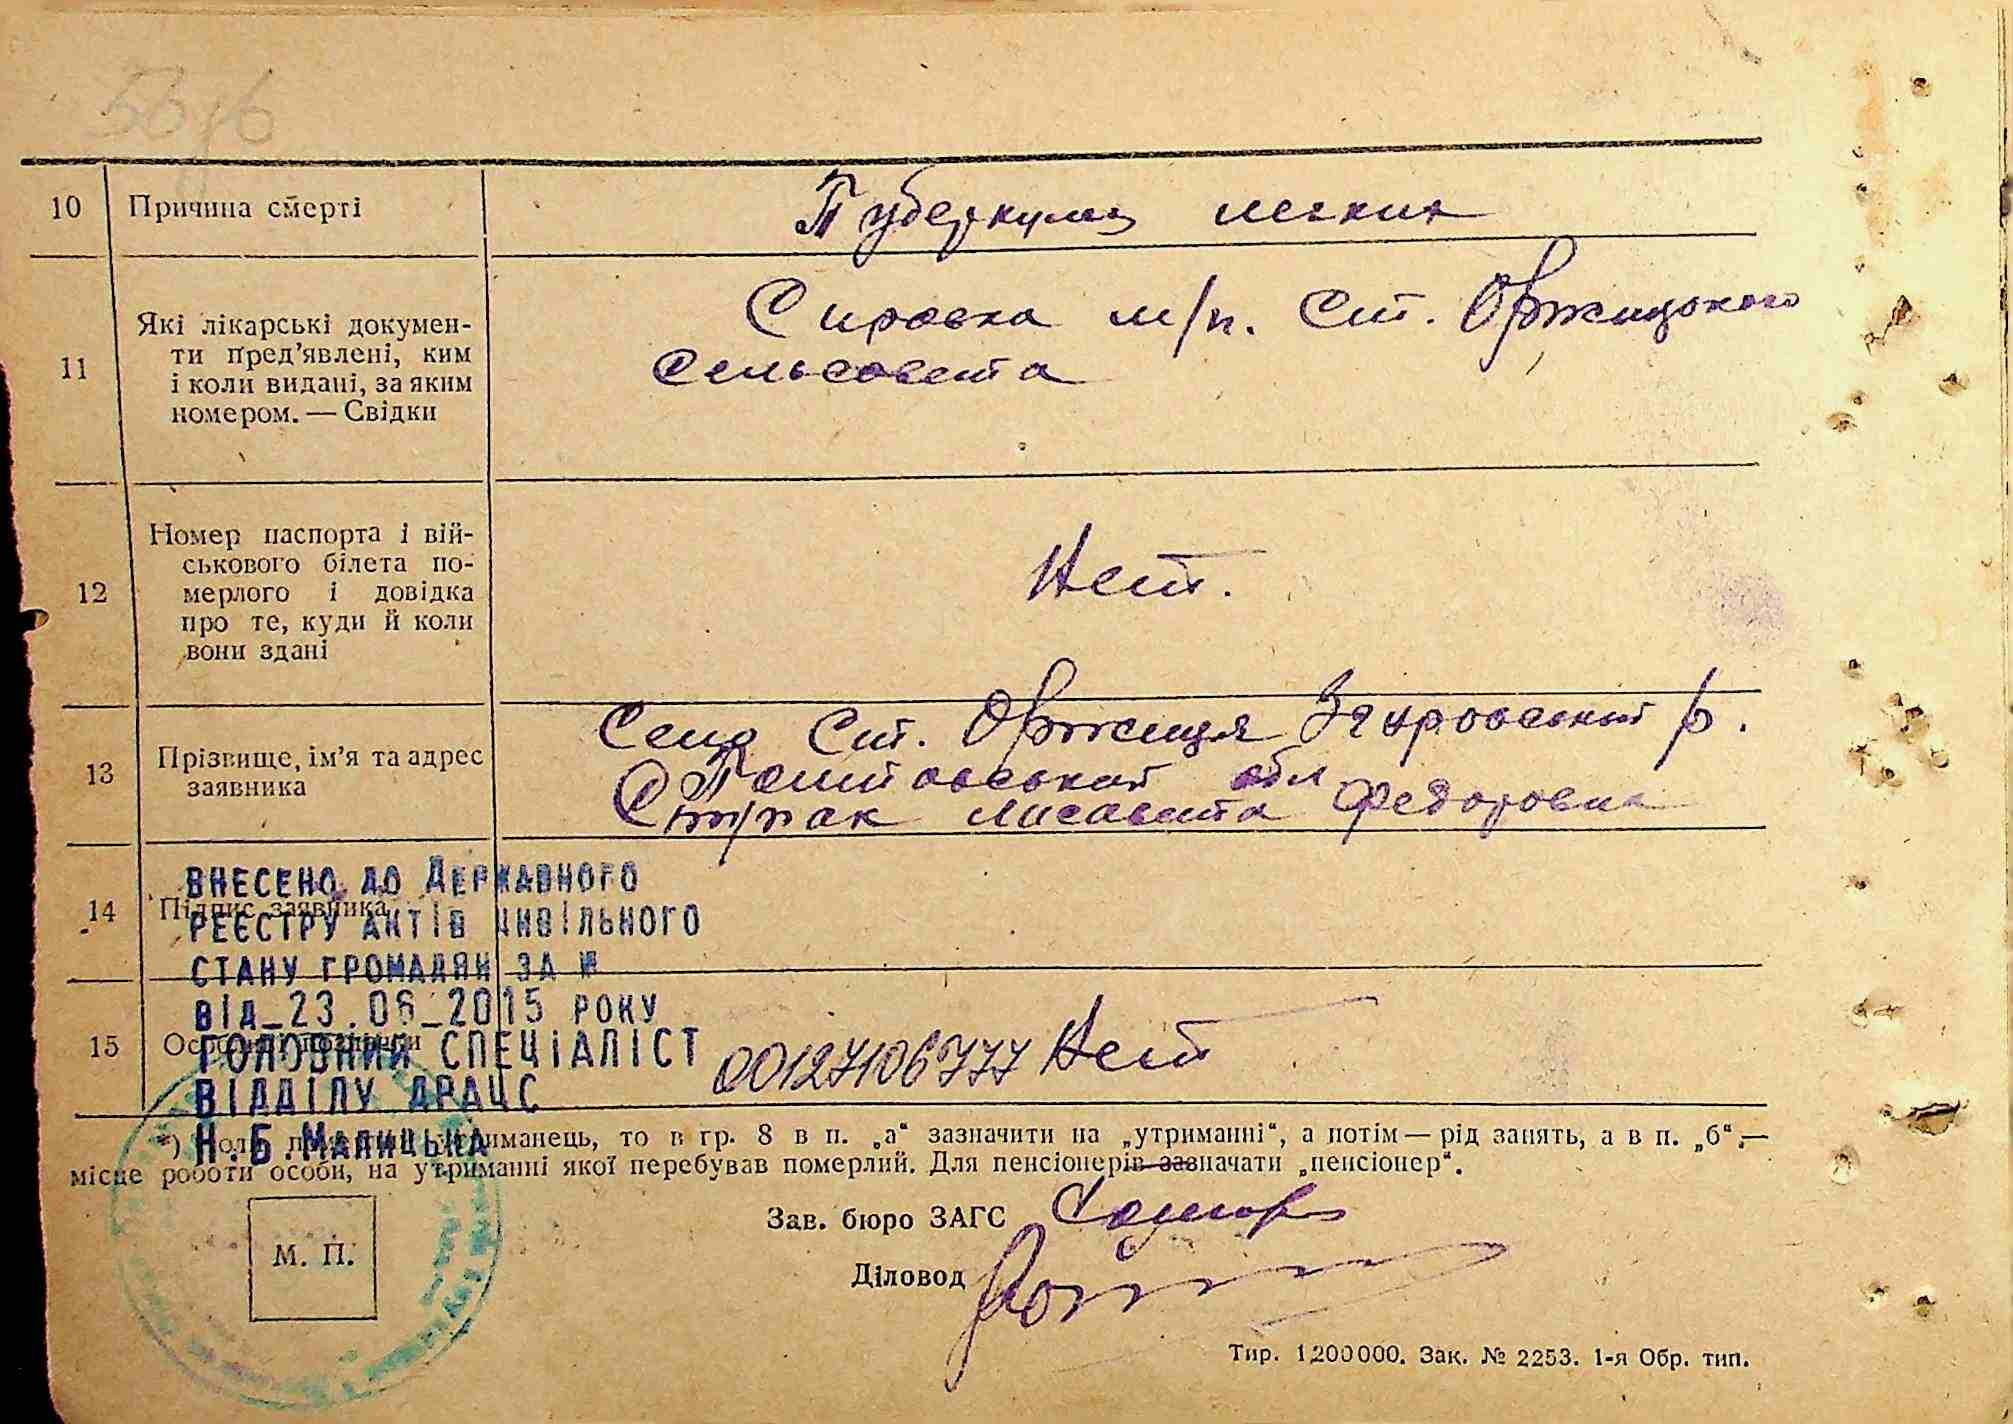 10 Причина смерті Туберкулез легких
11 Які лікарські докумен-
ти пред’явлені, ким
і коли видані, за яким
номером. — Свідки
Справка м/п. Ст. Оржицького
Сельсовета
12 Номер паспорта і вій-
ськового білета по-
мерлого і довідка
про те, куди й коли
вони здані
Нет.
13 Прізвище, ім’я та адрес
заявника
Село Ст. Оржиця Згуровський р.
Полтавський обл
Лисавита Федоровна
14 Підпис заявника
ВНЕСЕНО ДО ДЕРЖАВНОГО
РЕЄСТРУ АКТІВ ЦИВІЛЬНОГО
СТАНУ ГРОМАДЯН ЗА №
ВІД_23.06_2015 РОКУ
15
ГОЛОВНИЙ СПЕЦІАЛІСТ
00127106777 Нет
ВІДДІЛУ ДРАЦС
Н.Б.МАЛИЦЬКА
*) утриманець, то в гр. 8 в п. „а“ зазначити на „утриманні“, а потім — рід занять, а в п. „б“,—
місце роботи особи, на утриманні якої перебував померлий. Для пенсіонерів зазначати „пенсіонер“.
Зав. бюро ЗАГС
М. П.
Діловод
Тир. 1200000. Зак. № 2253. 1-я Обр. тип.